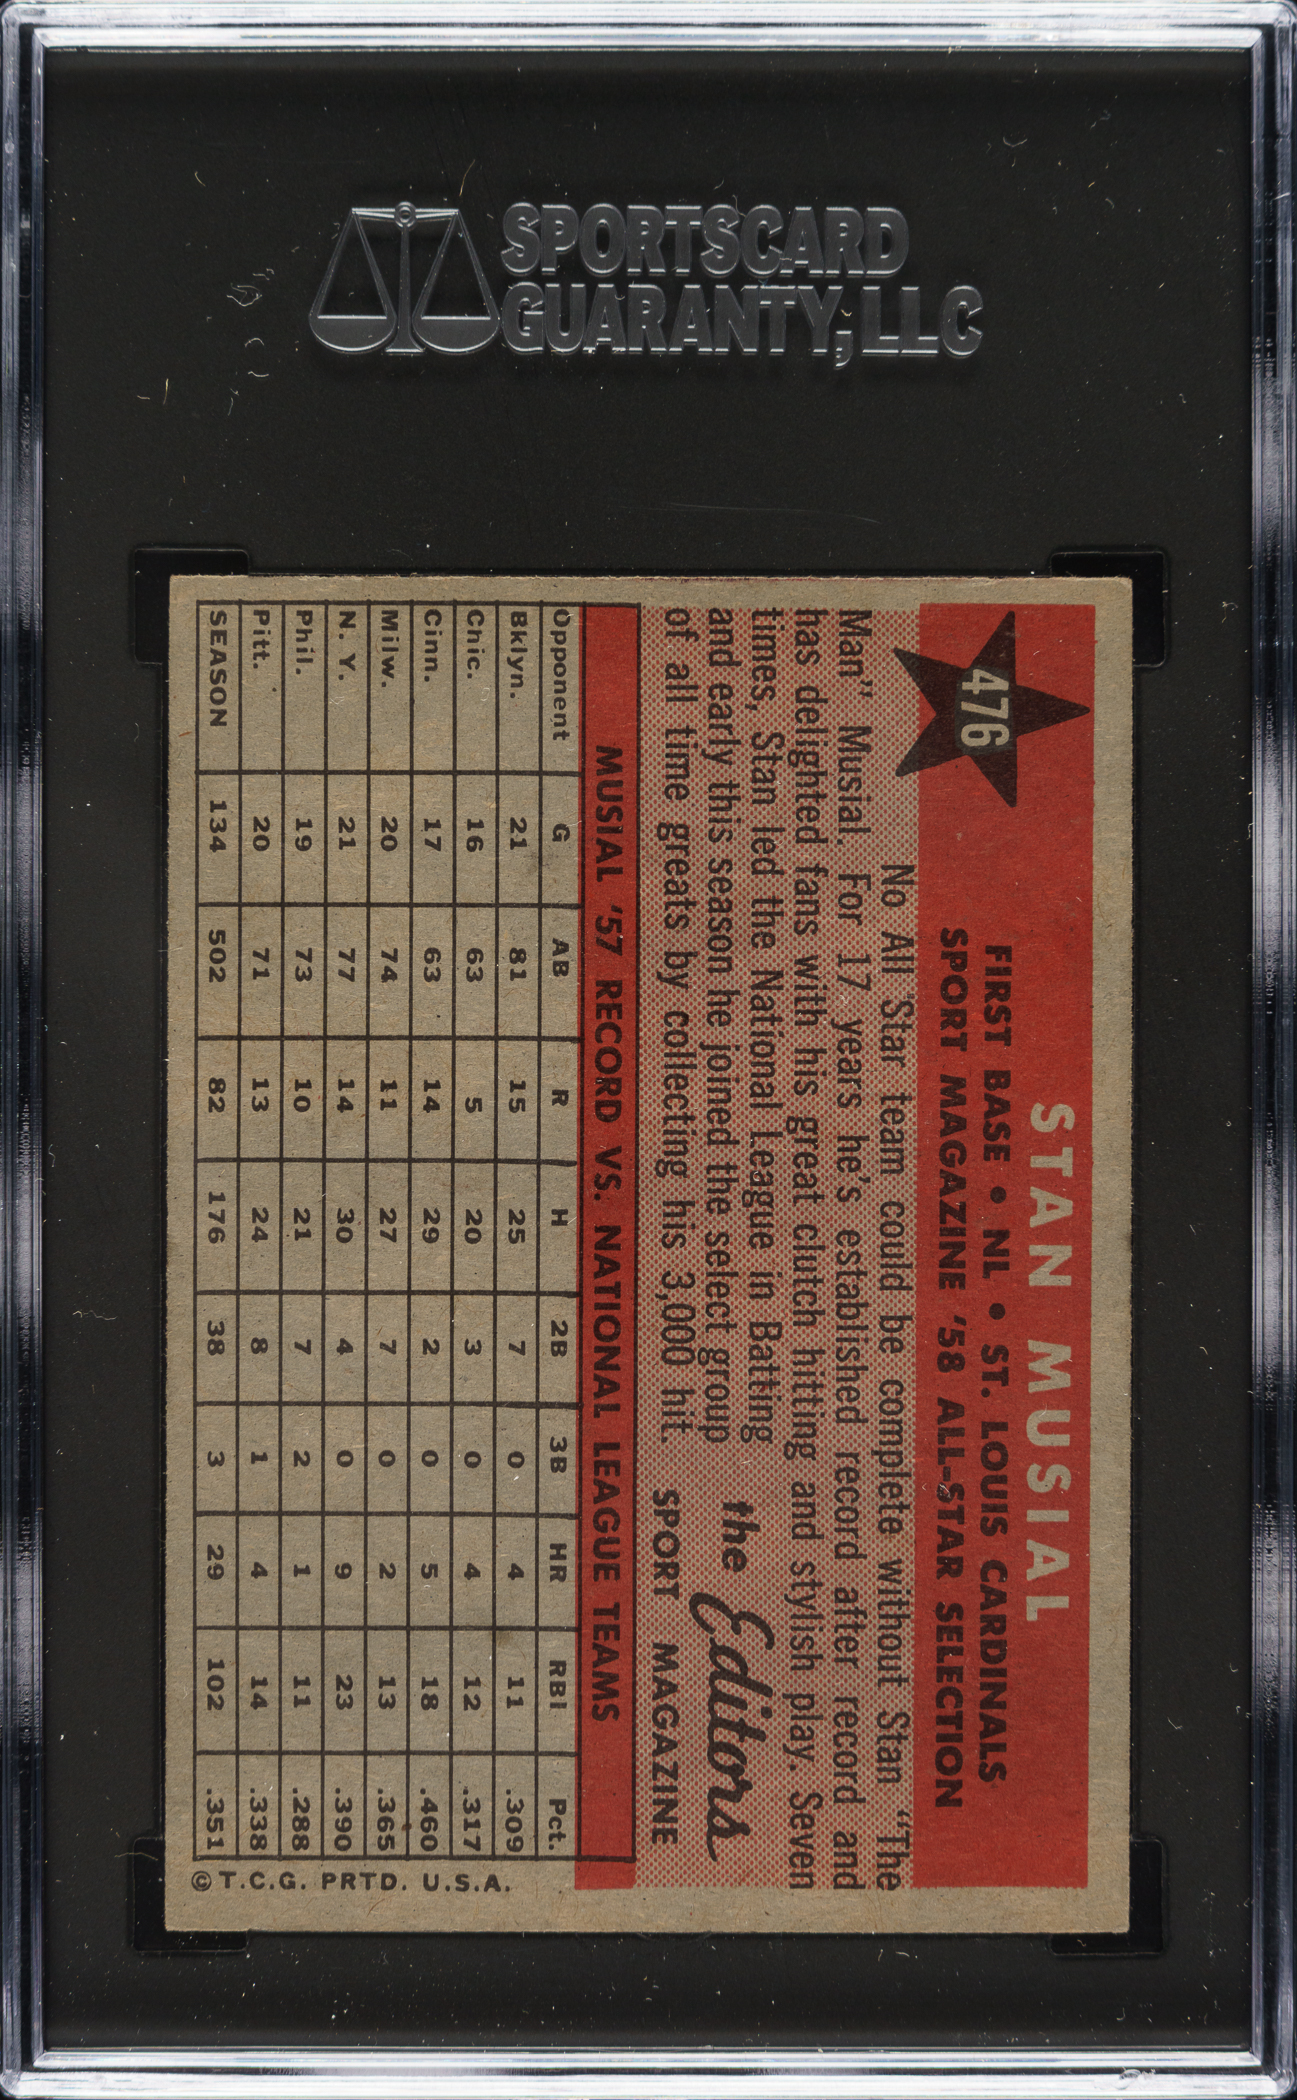 SPORTSCARD
GUARANTY, LLC
476
STAN MUSIAL
FIRST BASE • NL • ST. LOUIS CARDINALS
SPORT MAGAZINE '58 ALL-STAR SELECTION
No All Star team could be complete without Stan "The
Man" Musial. For 17 years he's established record after record and
has delighted fans with his great clutch hitting and stylish play. Seven
times, Stan led the National League in Batting
and early this season he joined the select group
of all time greats by collecting his 3,000 hit.
the Editors
SPORT MAGAZINE
MUSIAL '57 RECORD VS. NATIONAL LEAGUE TEAMS
Opponent G AB R H 2B 3B HR RBI Pct.
Bklyn. 21 81 15 25 7 0 4 11 .309
Chic. 16 63 5 20 3 0 4 12 .317
Cinn. 17 63 14 29 2 0 5 18 .460
Milw. 20 74 11 27 7 0 2 13 .365
N. Y. 21 77 14 30 4 0 9 23 .390
Phil. 19 73 10 21 7 2 1 11 .288
Pitt. 20 71 13 24 8 1 4 14 .338
SEASON 134 502 82 176 38 3 29 102 .351
© T.C.G. PRTD. U.S.A.